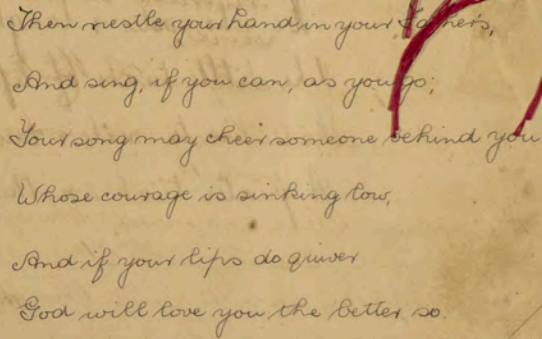 Then nestle your hand in your Father's,
And sing, if you can, as you go;
Your song may cheer someone behind you
Whose courage is sinking low,
And if your lips do quiver
God will love you the better so.